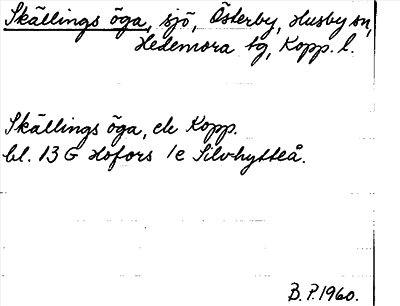 Skällings öga, sjö, Österby, Husby sn,
Hedemora tg, Kopp. l.
Skällings öga, ek Kopp.
bl. 13 G Hofors 1e Silvhytteå.
B.P. 1960.